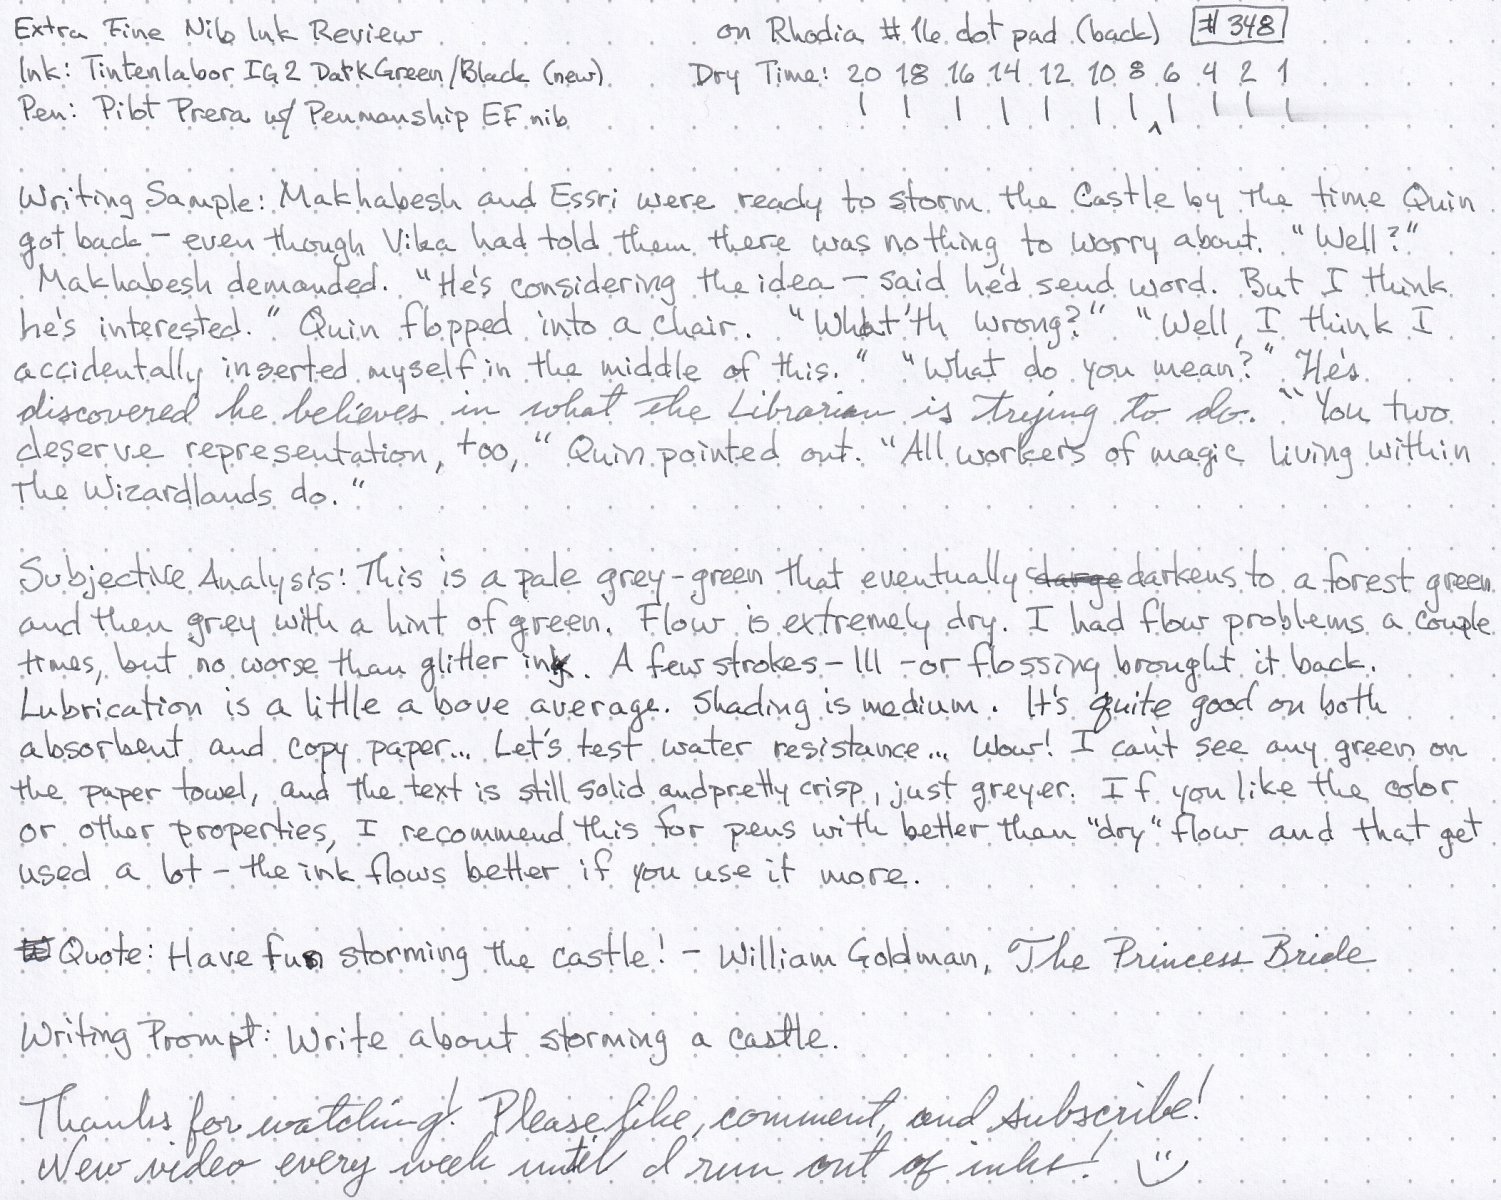 Extra Fine Nib Ink Review on Rhodia #16 dot pad (back) #348
Ink: Tintenlabor IG2 Dark Green/Black (new) Dry Time: 20 18 16 14 12 10 8 6 4 2 1
Pen: Pilot Prera w/ Penmanship EF nib
Writing Sample: Makhabesh and Essri were ready to storm the Castle by the time Quin
got back – even though Vika had told them there was nothing to worry about. "Well?"
Makhabesh demanded. "He's considering the idea – said he'd send word. But I think
he's interested." Quin flopped into a chair. "What'th wrong?" "Well, I think I
accidentally inserted myself in the middle of this." "What do you mean?" "He's
discovered he believes in what the Librarian is trying to do." "You two
deserve representation, too," Quin pointed out. "All workers of magic living within
the Wizardlands do."
Subjective Analysis: This is a pale grey-green that eventually darkens to a forest green
and then grey with a hint of green. Flow is extremely dry. I had flow problems a couple
times, but no worse than glitter ink. A few strokes – III – or flossing brought it back.
Lubrication is a little above average. Shading is medium. It's quite good on both
absorbent and copy paper... Let's test water resistance... Wow! I can't see any green on
the paper towel, and the text is still solid and pretty crisp, just greyer. If you like the color
or other properties, I recommend this for pens with better than "dry" flow and that get
used a lot – the ink flows better if you use it more.
Quote: Have fun storming the castle! – William Goldman, The Princess Bride
Writing Prompt: Write about storming a castle.
Thanks for watching! Please like, comment, and subscribe!
New video every week until I run out of inks!